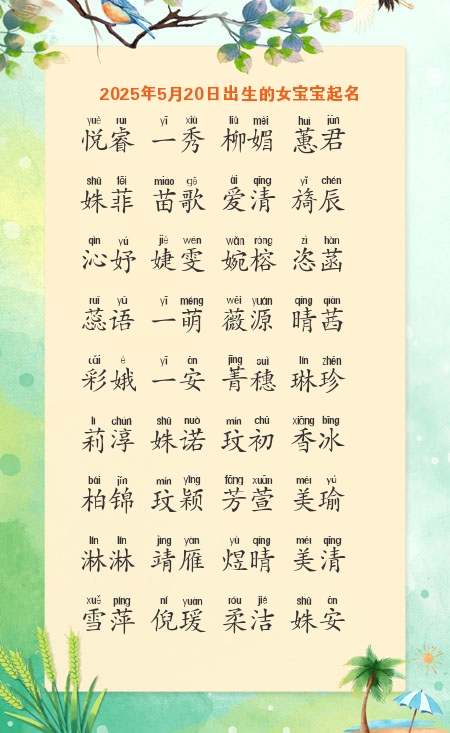 2025年5月20日出生的女宝宝起名
yuè ruì yī xiù liǔ mèi huì jūn
悦睿 一秀 柳媚 蕙君
shū fēi miáo gē ài qīng yǐ chén
姝菲 苗歌 爱清 旖辰
qìn yú jié wén wǎn róng zì hàn
沁妤 婕雯 婉榕 恣菡
ruǐ yǔ yī méng wēi yuán qíng qiàn
蕊语 一萌 薇源 晴茜
cǎi é yī ān jīng suì lín zhēn
彩娥 一安 菁穗 琳珍
lì chún shū nuò mín chū xiāng bīng
莉淳 姝诺 玟初 香冰
bǎi jǐn mín yǐng fāng xuān měi yú
柏锦 玟颖 芳萱 美瑜
lín lín jìng yàn yù qíng měi qīng
淋淋 靖雁 煜晴 美清
xuě píng ní yuàn róu jié shū ān
雪萍 倪瑗 柔洁 姝安